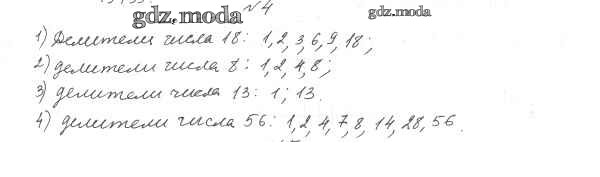 gdz.moda №4 gdz.moda
1) Делители числа 18: 1, 2, 3, 6, 9, 18;
2) делители числа 8: 1, 2, 4, 8;
3) делители числа 13: 1; 13.
4) делители числа 56: 1, 2, 4, 7, 8, 14, 28, 56.